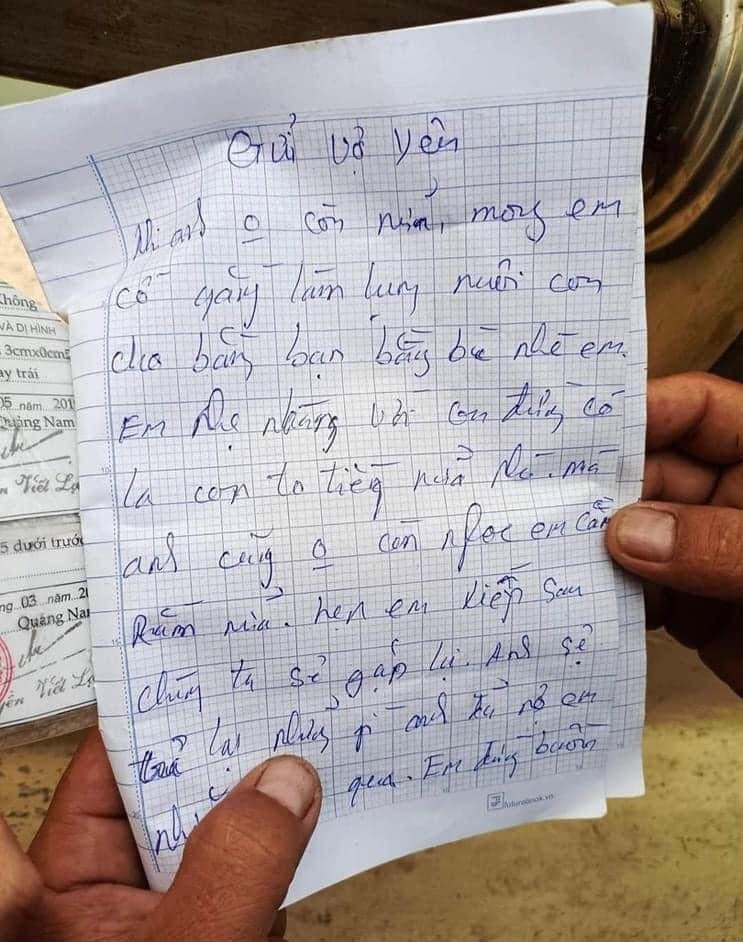 Gửi Vợ Yên
Khi anh o còn nữa, mong em
cố gắng làm lụng nuôi con
cho bằng bạn bằng bè nhé em.
Em nhẹ nhàng với con đừng có
la con to tiếng nữa nhé. mà
anh cũng o còn nghe em cằn
Rằn nữa. hẹn em kiếp sau
chúng ta sẽ gặp lại. Anh sẽ
trả lại những gì anh nợ em
qua. Em đừng buồn
futurebook.vn
Không
VÀ DỊ HÌNH
3cmx0cm5
ay trái
05 năm 201
Quảng Nam
n Viết
5 dưới trước
ng 03 năm 20
Quảng Na
yễn Viết